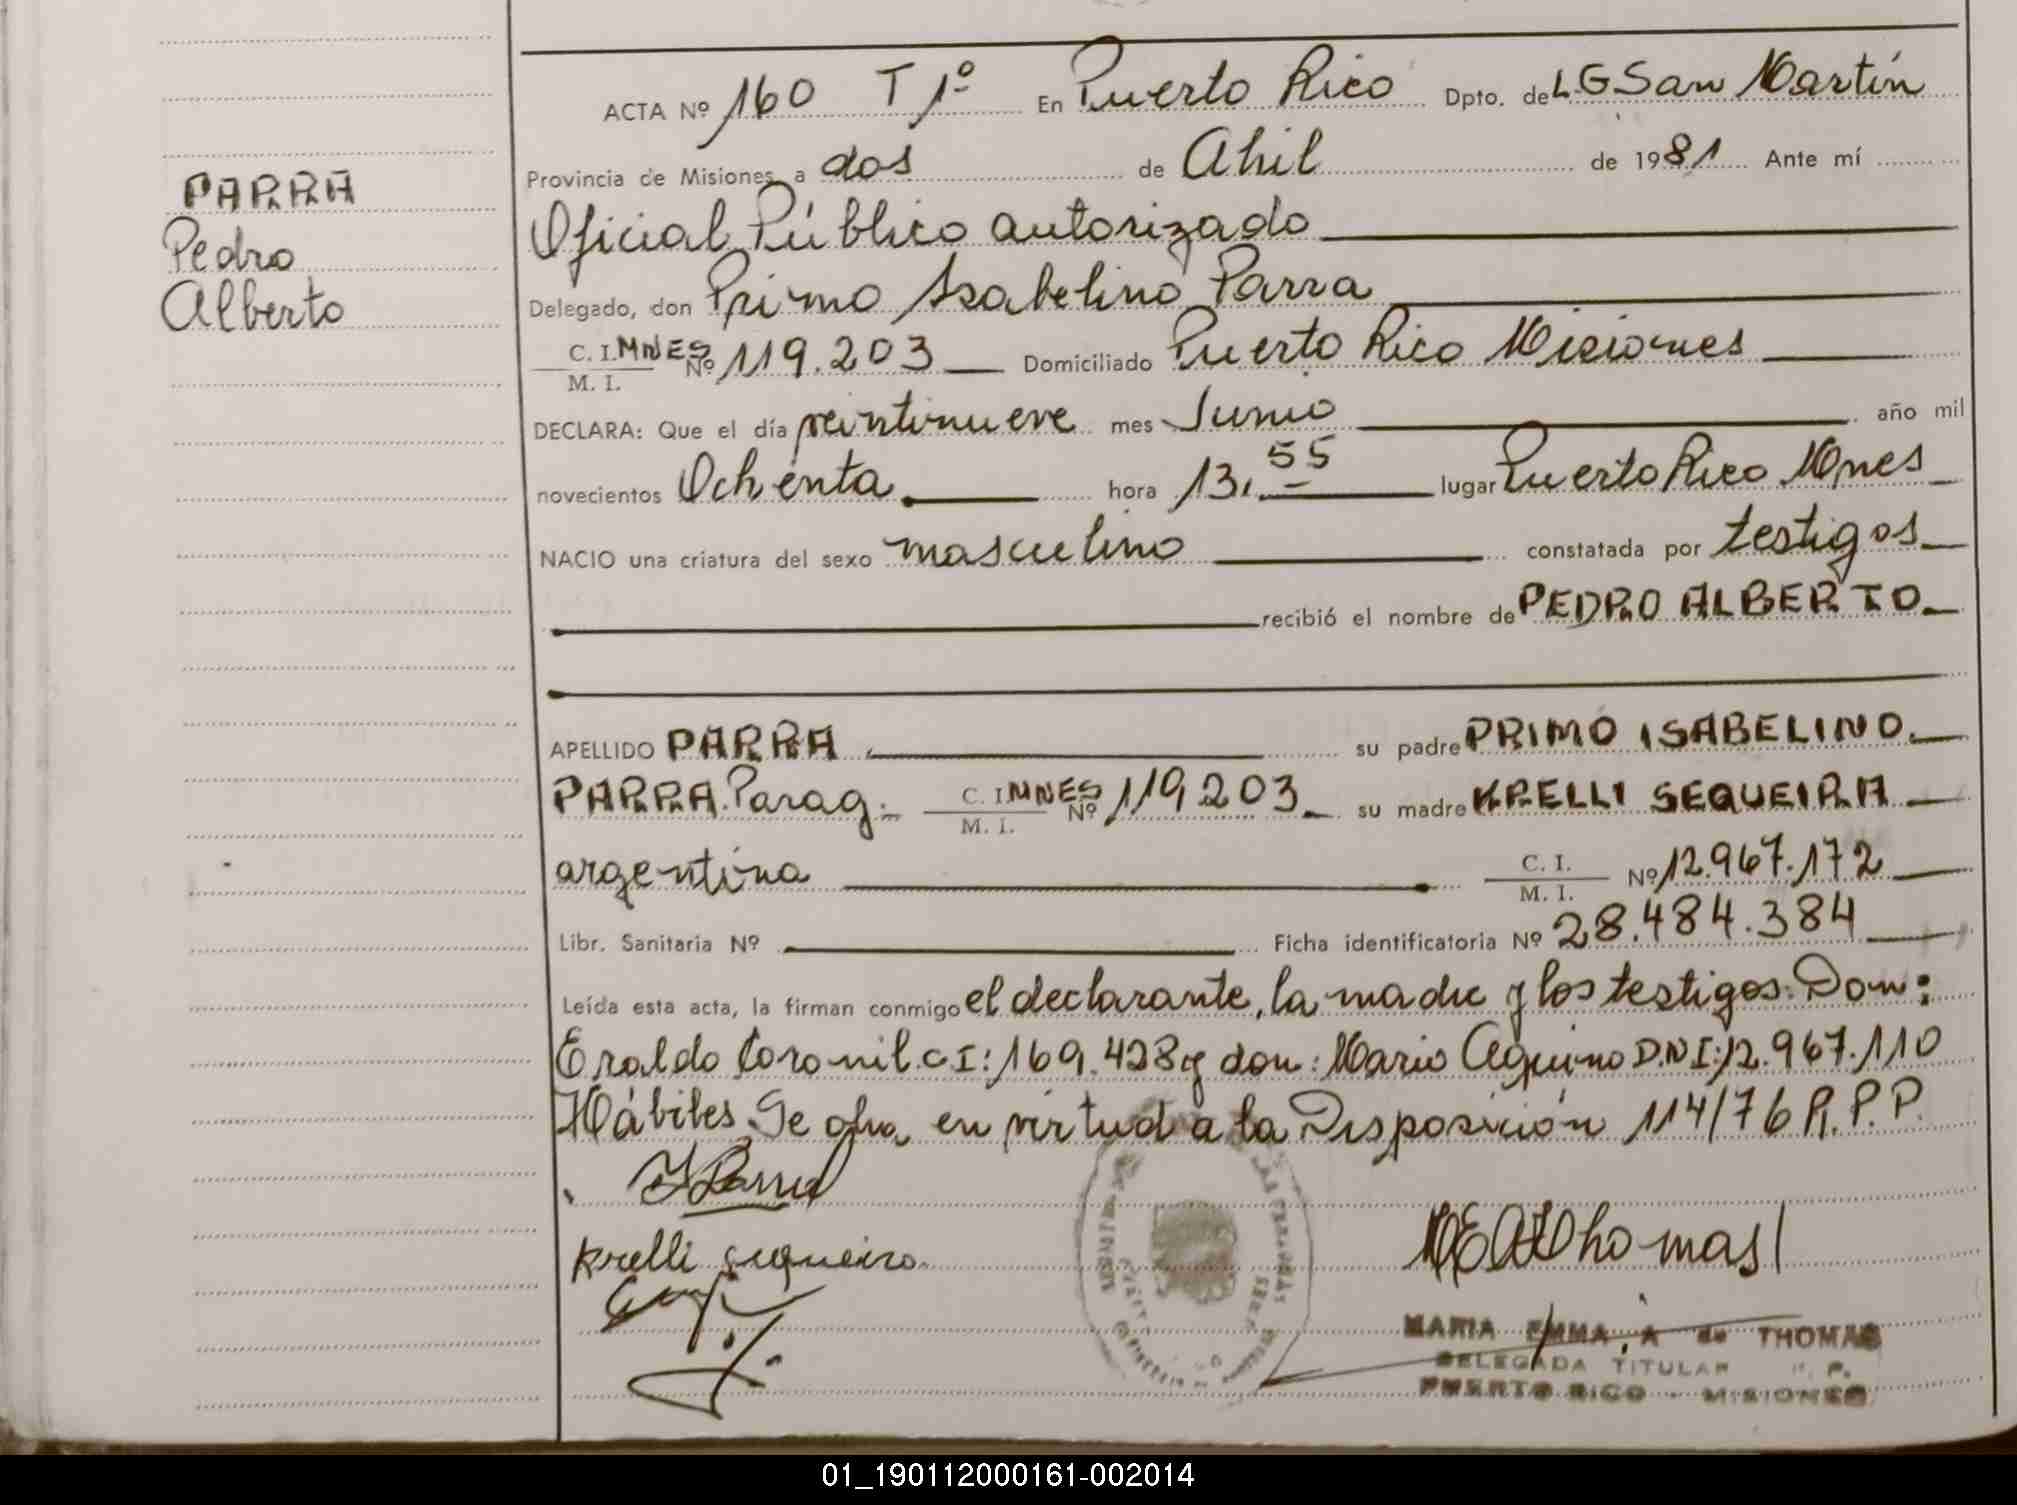 ACTA Nº 160 T 1º En Puerto Rico Dpto. de L G San Martín
Provincia de Misiones a dos de Abril de 1981 Ante mí
Oficial Público autorizado
Delegado, don Primo Isabelino Parra
C. I. MNES
M. I. Nº 119.203 Domiciliado Puerto Rico Misiones
DECLARA: Que el día veintinueve mes Junio año mil
novecientos Ochenta hora 13,55 lugar Puerto Rico Mnes
NACIO una criatura del sexo masculino constatada por testigos
recibió el nombre de PEDRO ALBERTO
APELLIDO PARRA su padre PRIMO ISABELINO
PARRA Parag. C. I. MNES
M. I. Nº 119.203 su madre KRELLI SEQUEIRA
argentina C. I.
M. I. Nº 12.967.172
Libr. Sanitaria Nº Ficha identificatoria Nº 28.484.384
Leída esta acta, la firman conmigo el declarante, la madre y los testigos: Don:
Eraldo Coronil C I: 169.428 y don: Mario Aquino D.N I: 12.967.110
Hábiles. Se obra en virtud a la Disposición 114/76 R. P. P.
PARRA
Pedro
Alberto
Krelli Sequeira
MEAThomas
MARIA EMMA A de THOMAS
DELEGADA TITULAR R. P.
PUERTO RICO - MISIONES
01_190112000161-002014